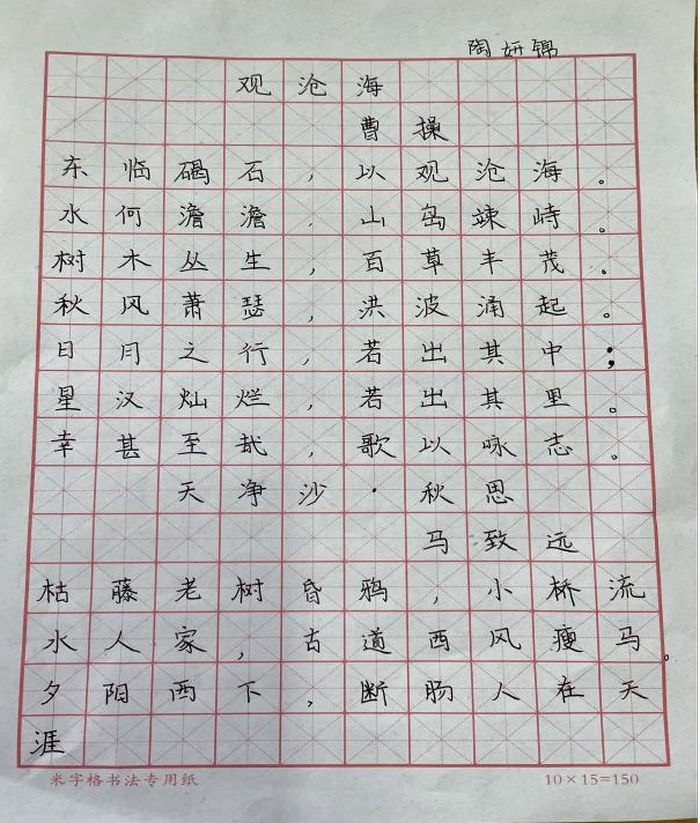 陶妍锦
观沧海
曹操
东临碣石，以观沧海。
水何澹澹，山岛竦峙。
树木丛生，百草丰茂。
秋风萧瑟，洪波涌起。
日月之行，若出其中；
星汉灿烂，若出其里。
幸甚至哉，歌以咏志。
天净沙·秋思
马致远
枯藤老树昏鸦，小桥流
水人家，古道西风瘦马。
夕阳西下，断肠人在天
涯
米字格书法专用纸 10×15=150